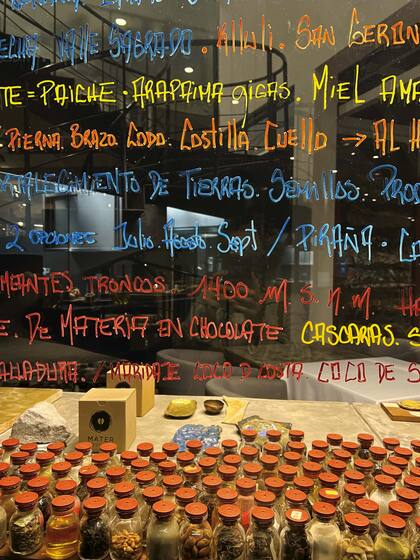 ECHA. VALLE SAGRADO. KIWILI. SAN GERON
TE = PAICHE • ARAPAIMA GIGAS. MIEL AMA
PIERNA. BRAZO. CODO. COSTILLA. CUELLO → AL H
TALECIMIENTO DE TIERRAS. SEMILLAS. PROD
2 OPCIONES Julio Agosto Sept / PIRAÑA •
MEANTES TRONCOS. 1400 M. S. N. M.
E. DE MATERIA EN CHOCOLATE CASCARAS. S
/ MARIDAJE COCO D COSTA. COCO DE S
MATER